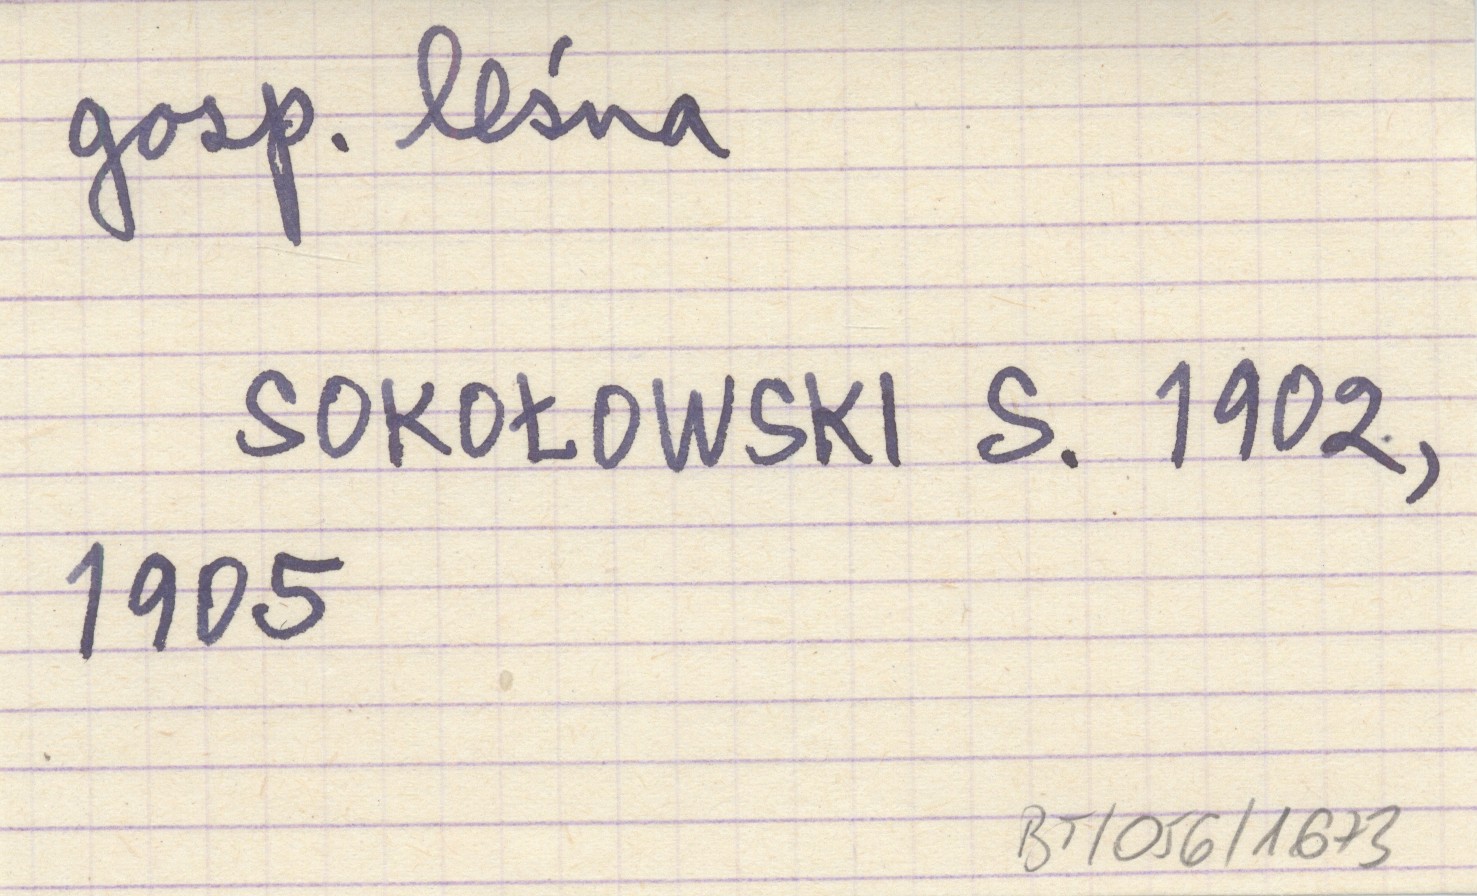 gosp. leśna
SOKOŁOWSKI S. 1902,
1905
BT/056/1673